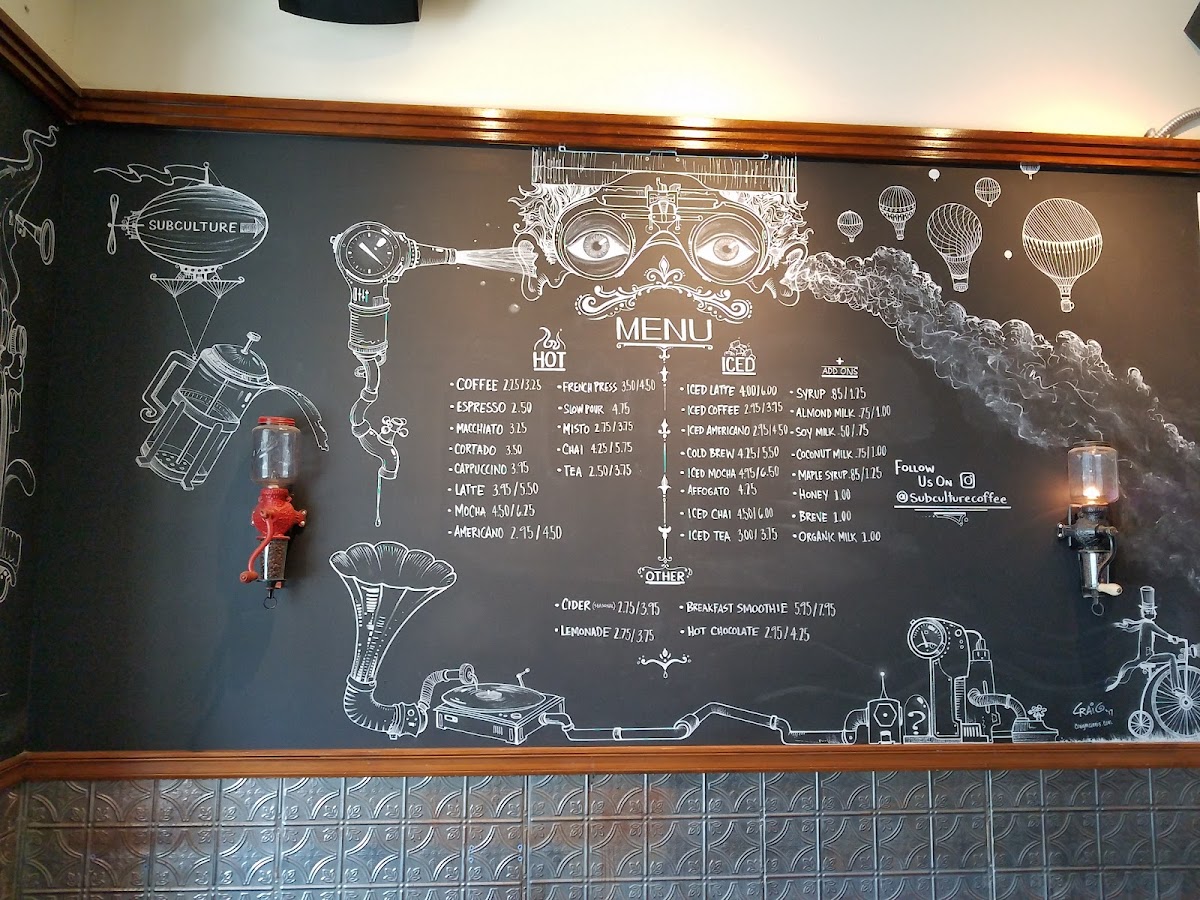 SUBCULTURE
MENU
HOT
• COFFEE 2.25/3.25
• ESPRESSO 2.50
• MACCHIATO 3.25
• CORTADO 3.50
• CAPPUCCINO 3.95
• LATTE 3.95/5.50
• MOCHA 4.50/6.25
• AMERICANO 2.95/4.50
• FRENCH PRESS 3.50/4.50
• SLOW POUR 4.75
• MISTO 2.75/3.75
• CHAI 4.25/5.75
• TEA 2.50/3.75
ICED
• ICED LATTE 4.00/6.00
• ICED COFFEE 2.95/3.95
• ICED AMERICANO 2.95/4.50
• COLD BREW 4.25/5.50
• ICED MOCHA 4.95/6.50
• AFFOGATO 4.75
• ICED CHAI 4.50/6.00
• ICED TEA 3.00/3.75
+
ADD ONS
• SYRUP .85/1.25
• ALMOND MILK .75/1.00
• SOY MILK .50/.75
• COCONUT MILK .75/1.00
• MAPLE SYRUP .85/1.25
• HONEY 1.00
• BREVE 1.00
• ORGANIC MILK 1.00
FOLLOW
US ON
@Subculturecoffee
OTHER
• CIDER 2.75/3.95
• LEMONADE 2.75/3.75
• BREAKFAST SMOOTHIE 5.95/7.95
• HOT CHOCOLATE 2.95/4.25
?
CRAIG '17